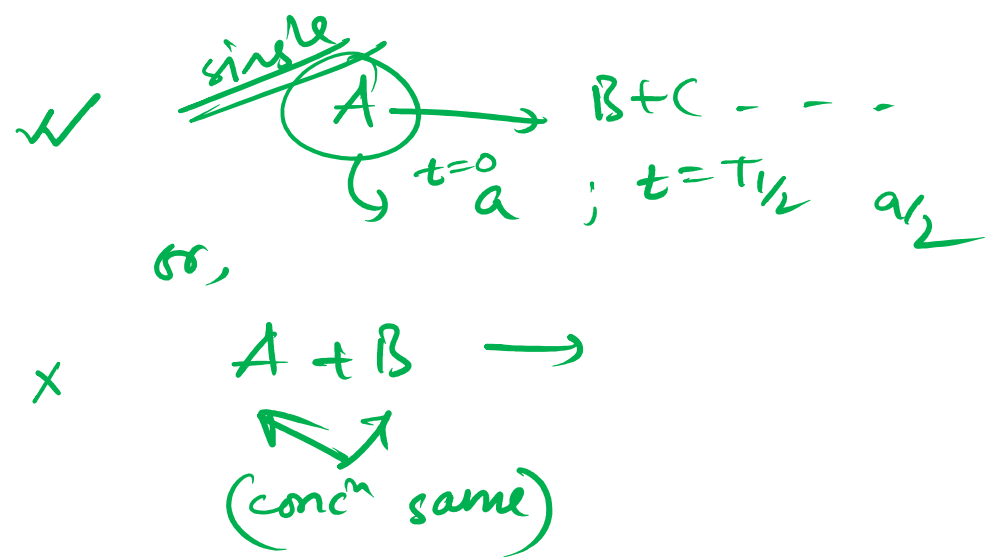 single
A → B + C - - -
t=0 a ; t = T1/2 a/2
or,
A + B →
(concⁿ same)